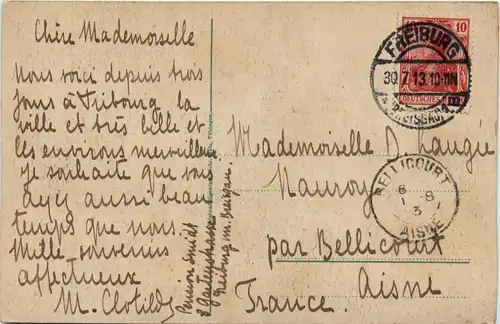 Chère Mademoiselle
Nous voici depuis trois
jours à Fribourg la
ville et très belle et
les environs merveilleux
je souhaite que vous
ayez aussi beau
temps que nous.
Mille souvenirs
affectueux
M. Clotilde
Pension Smidt
8 Gartenstrasse
Freiburg im Breisgau
10
FREIBURG
30.7.13.10-11N
(BREISGAU)
DEUTSCHES
Mademoiselle D. Laugie
Nauroy
par Bellicourt
Aisne
France.
BELLICOURT
6
1 8
3
AISNE